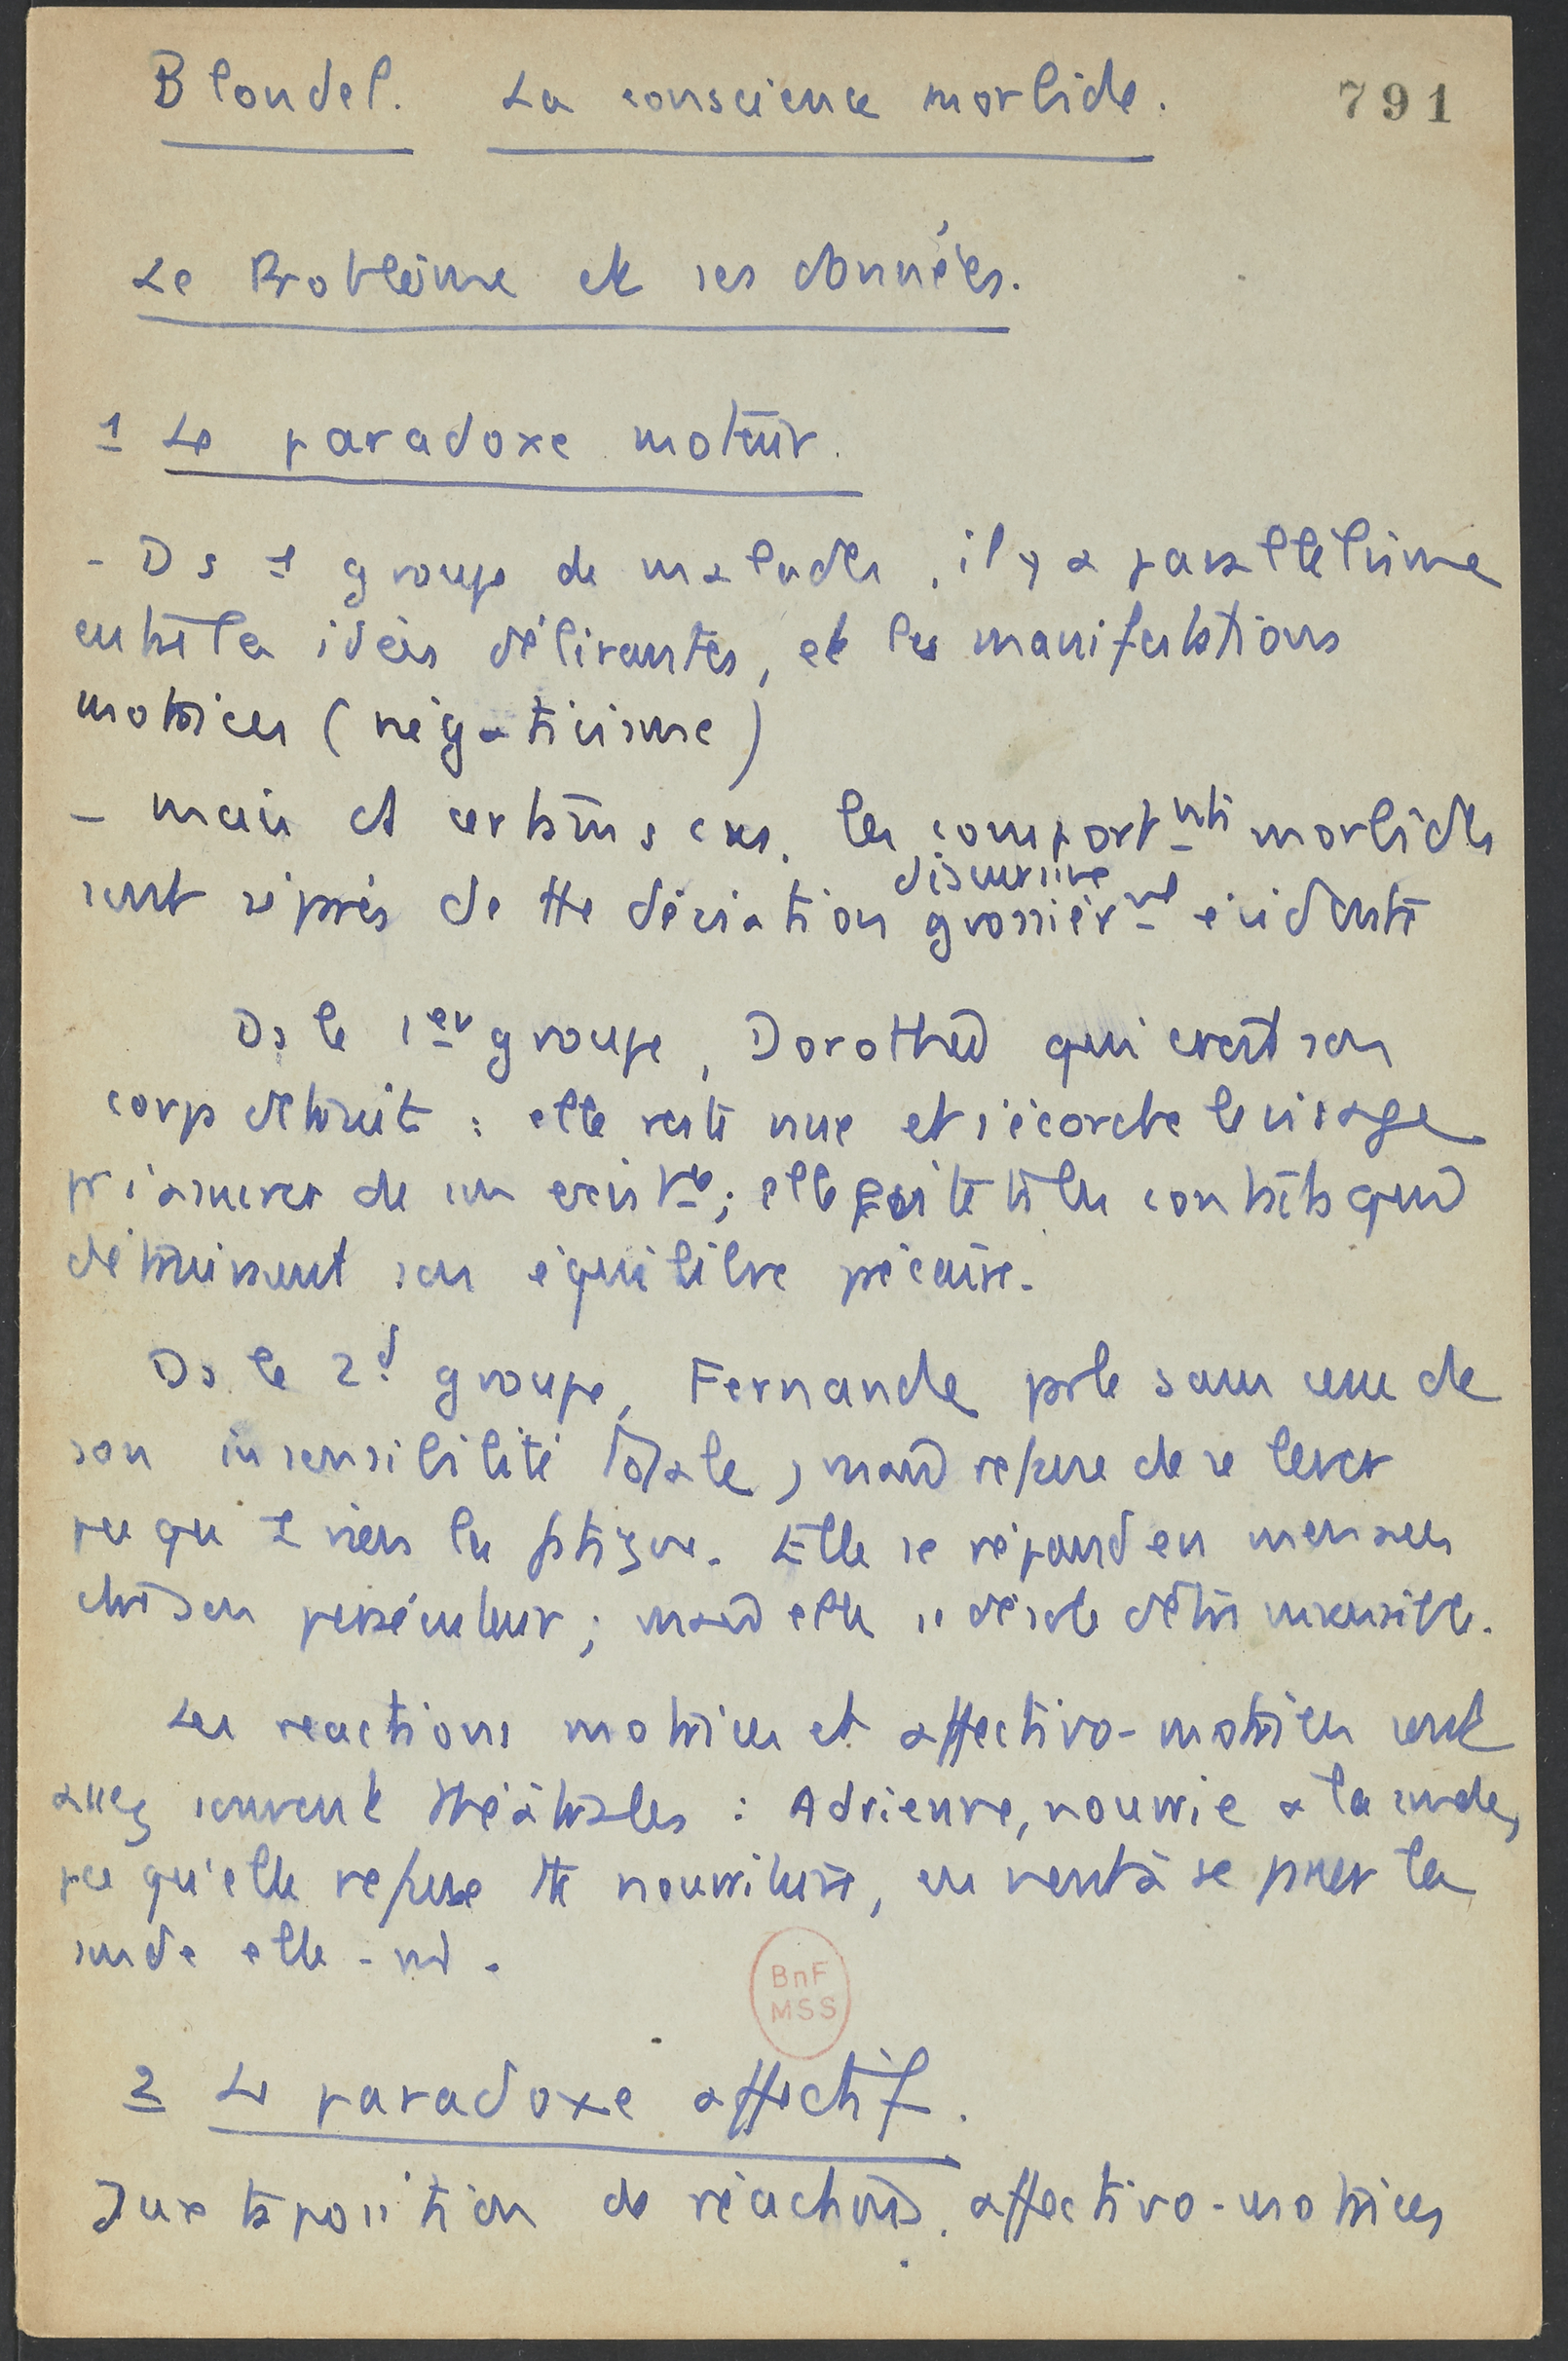 Blondel. La conscience morbide.
791
Le Problème et ses données.
1 Le paradoxe moteur.
- Ds 1 groupe de malades, il y a parallélisme
entre les idées délirantes, et les manifestations
motrices (négativisme)
- mais ds certains cas, les comportmts morbides
discursive
sont séparés de tte déviation grossièrmt évidente
Ds le 1er groupe, Dorothée qui croit son
corps détruit : elle reste nue et s'écorche le visage
pr s'assurer de son existce ; elle évite ts les contacts qui
détruisent son équilibre précaire.
Ds le 2d groupe, Fernande parle sans cesse de
son insensibilité totale, mais refuse de se lever
pcq 1 rien la fatigue. Elle se répand en menaces
ctre son persécuteur ; mais elle se désole d'être insensible.
Les reactions motrices et affectivo-motrices sont
assez souvent théâtrales : Adrienne, nourrie à la sonde,
pcq qu'elle refuse tte nourriture, en vient à se passer la
sonde elle-m.
BnF
MSS
2 Le paradoxe affectif.
Juxtaposition de réactions affectivo-motrices